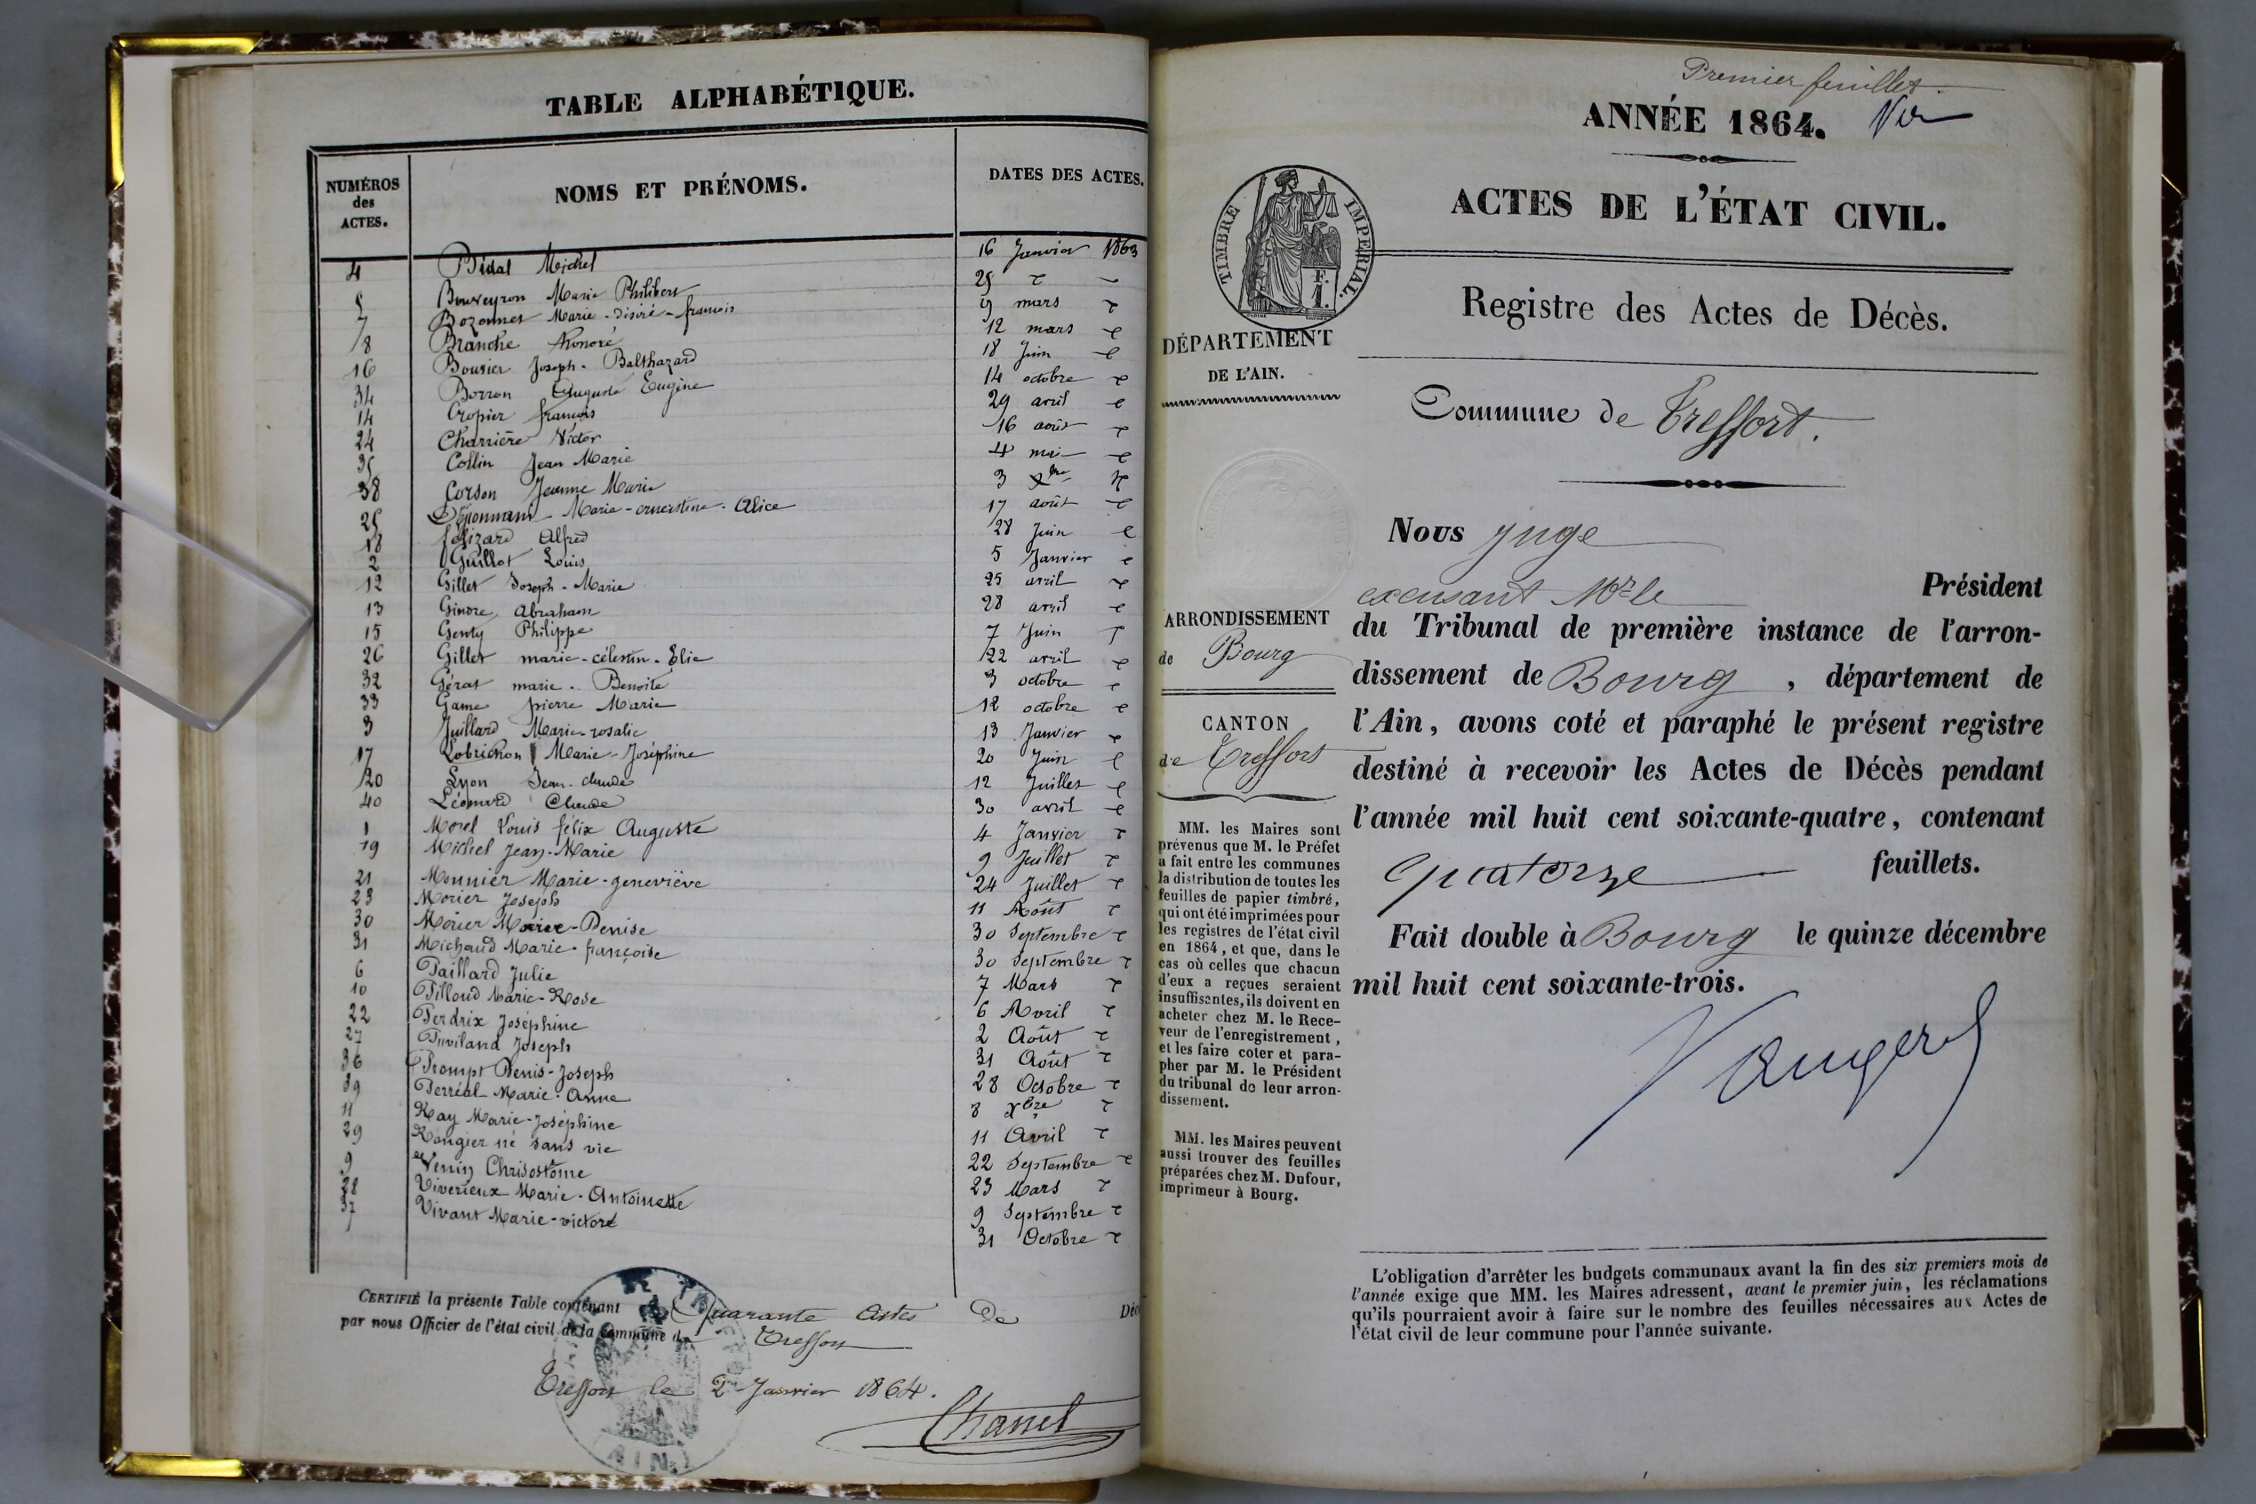 TABLE ALPHABÉTIQUE.
NUMÉROS des ACTES. NOMS ET PRÉNOMS. DATES DES ACTES.
4 Bidal Michel 16 Janvier 1863
5 Bouveyron Marie Philibert 25
7 Bozonnet Marie-désiré-françois 9 mars
8 Branche honoré 12 mars
16 Bouvier Joseph-Balthazard 18 Juin
34 Borron Auguste Eugène 14 octobre
14 Cropier françois 29 avril
24 Charrière Victor 16 août
35 Collin Jean Marie 4 mai
38 Corson Jeanne Marie 3 Xbre
25 Marie-ernestine-Alice 17 août
18 Alfred 28 Juin
2 Guillot Louis 5 Janvier
12 Gillet Joseph-Marie 25 avril
13 Ginore Abraham 28 avril
15 Genty Philippe 7 Juin
26 Gillet marie-célestin-Elie 22 avril
32 Gérat marie-Benoite 3 octobre
33 Game pierre Marie 12 octobre
3 Juillard Marie-rosalie 13 Janvier
17 Lobrichon Marie-Joséphine 20 Juin
20 Lyon Jean-claude 12 Juillet
40 Léonard Claude 30 avril
1 Morel Louis félix Auguste 4 Janvier
19 Michel Jean-Marie 9 Juillet
21 Monnier Marie-geneviève 24 Juillet
23 Morier Joseph 11 Août
30 Morier Marie-Denise 30 Septembre
31 Michaud Marie-françoise 30 Septembre
6 Paillard Julie 7 Mars
10 Pilloud Marie-Rose 6 Avril
22 Perdrix Joséphine 2 Août
27 Puviland Joseph 31 Août
36 Prompt Denis-Joseph 28 Octobre
39 Perréal Marie-Anne 8 Xbre
11 Ray Marie-Joséphine 11 Avril
29 Rongier né sans vie 22 Septembre
9 Venin Chrisostôme 23 Mars
28 Viverieux Marie-Antoinette 9 Septembre
37 Vivant Marie-victore 31 Octobre
CERTIFIÉ la présente Table contenant Quarante Actes de Déc
par nous Officier de l'état civil de la commune de Treffort
Treffort le 2 Janvier 1864.
Chanel
Premier feuillet.
ANNÉE 1864.
ACTES DE L'ÉTAT CIVIL.
TIMBRE IMPÉRIAL.
F. 1.
Registre des Actes de Décès.
DÉPARTEMENT
DE L'AIN.
Commune de Treffort.
ARRONDISSEMENT
de Bourg
CANTON
de Treffort
MM. les Maires sont
prévenus que M. le Préfet
a fait entre les communes
la distribution de toutes les
feuilles de papier timbré,
qui ont été imprimées pour
les registres de l'état civil
en 1864, et que, dans le
cas où celles que chacun
d'eux a reçues seraient
insuffisantes, ils doivent en
acheter chez M. le Rece-
veur de l'enregistrement,
et les faire coter et para-
pher par M. le Président
du tribunal de leur arron-
dissement.
MM. les Maires peuvent
aussi trouver des feuilles
préparées chez M. Dufour,
imprimeur à Bourg.
Nous juge
excusant Mr le Président
du Tribunal de première instance de l'arron-
dissement de Bourg, département de
l'Ain, avons coté et paraphé le présent registre
destiné à recevoir les Actes de Décès pendant
l'année mil huit cent soixante-quatre, contenant
quatorze feuillets.
Fait double à Bourg le quinze décembre
mil huit cent soixante-trois.
L'obligation d'arrêter les budgets communaux avant la fin des six premiers mois de
l'année exige que MM. les Maires adressent, avant le premier juin, les réclamations
qu'ils pourraient avoir à faire sur le nombre des feuilles nécessaires aux Actes de
l'état civil de leur commune pour l'année suivante.